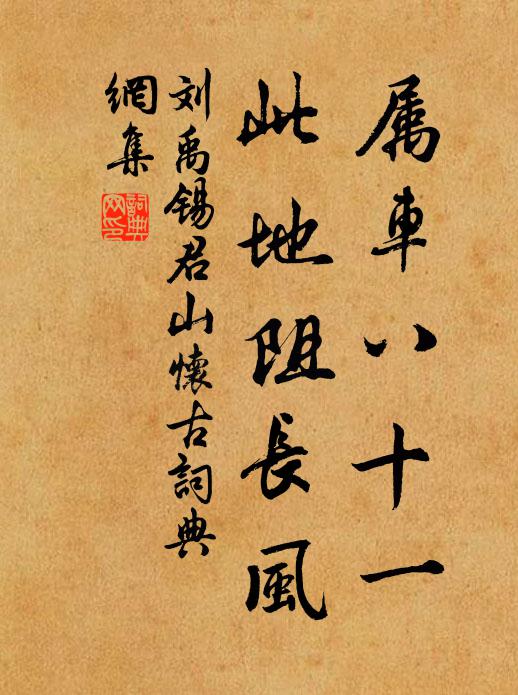 属車八十一
此地阻長風
刘禹锡君山懷古詞典
網集
詞典
网印